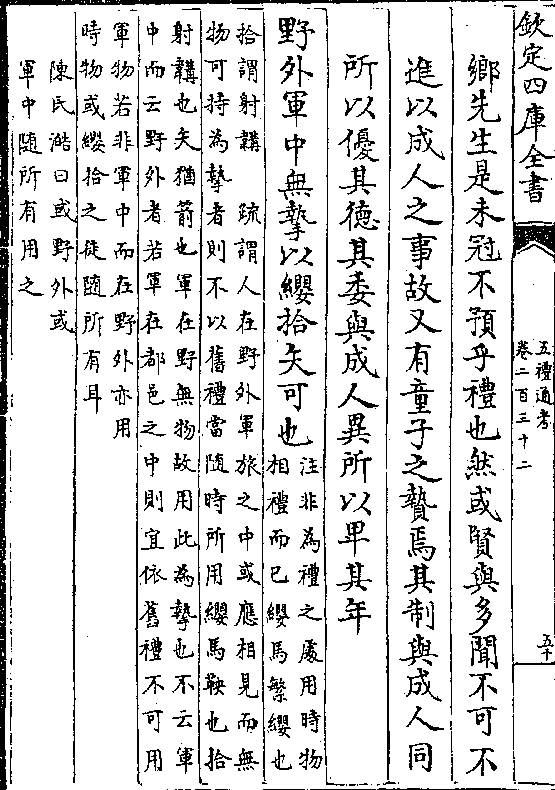 欽定四庫全書
五禮通考
卷二百三十二
五十
鄉先生是未冠不預乎禮也然或賢與多聞不可不
進以成人之事故又有童子之贄焉其制與成人同
所以優其德其委與成人異所以卑其年
野外軍中無摯以纓拾矢可也
注非為禮之處用時物
相禮而已纓馬繁纓也
拾謂射韝　疏謂人在野外軍旅之中或應相見而無
物可持為摯者則不以舊禮當隨時所用纓馬鞅也拾
射韝也矢猶箭也軍在野無物故用此為摯也不云軍
中而云野外者若軍在都邑之中則宜依舊禮不可用
軍物若非軍中而在野外亦用
時物或纓拾之徒隨所有耳
陳氏澔曰或野外或
軍中隨所有用之